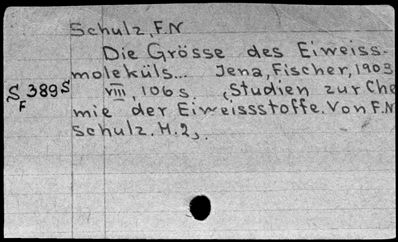 Schulz, F.N
Die Grösse des Eiweiss-
moleküls... Jena, Fischer, 1903
S 389 S
F
VIII, 106 s. (Studien zur Che
mie der Eiweissstoffe. Von F.N
Schulz. H.2).